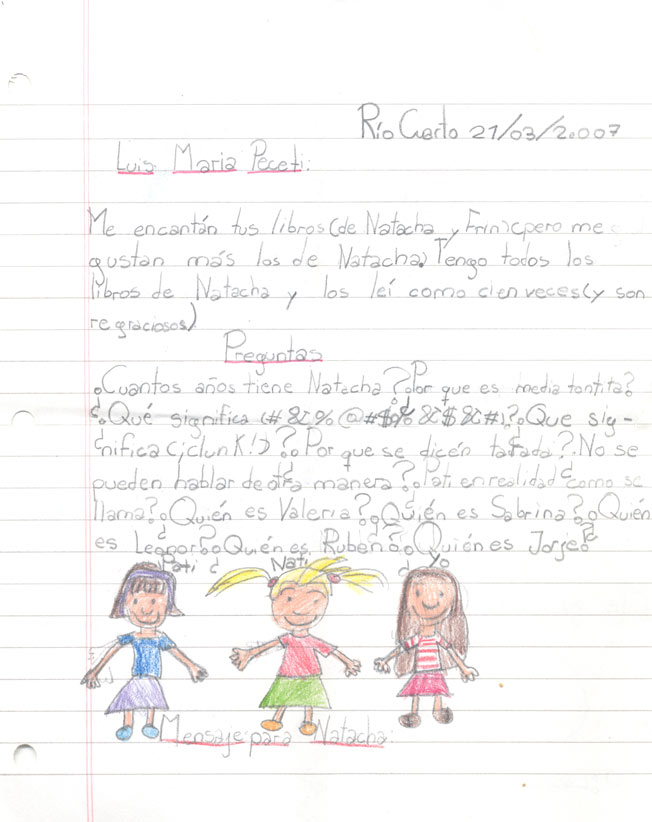 Río Cuarto 21/03/20007
Luis Maria Peceti:
Me encantán tus libros (de Natacha y Frin) (pero me
gustan más los de Natacha) Tengo todos los
libros de Natacha y los leí como cien veces (y son
re graciosos)
Preguntas
¿Cuantos años tiene Natacha? ¿Por que es media tontita?
¿Qué significa (#&%@#$%&$&#)? ¿Que sig-
nifica (¡clunk!)? ¿Por que se dicen tarada? ¿No se
pueden hablar de otra manera? ¿Pati en realidad como se
llama? ¿Quién es Valeria? ¿Quién es Sabrina? ¿Quién
es Leonor? ¿Quén es Rubén? ¿Quién es Jorje?
Pati Nati Yo
Mensaje para Natacha: